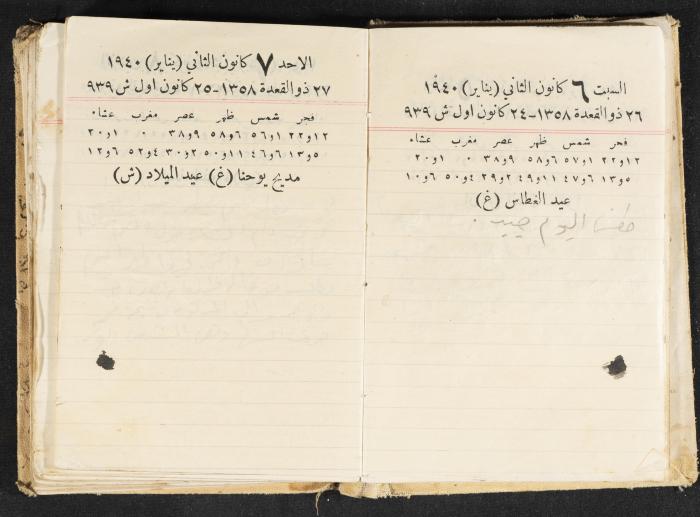 السبت ٦ كانون الثاني (يناير) ١٩٤٠
٢٦ ذو القعدة ١٣٥٨ - ٢٤ كانون اول ش ٩٣٩
فجر شمس ظهر عصر مغرب عشاء
١٢و٢٢ ١و٥٧ ٦و٥٨ ٩و٣٨ ٠ ١و٢٠
٥و١٣ ٦و٤٧ ١١و٤٩ ٢و٢٩ ٤و٥٠ ٦و١٠
عيد الغطاس (غ)
اليوم
الاحد ٧ كانون الثاني (يناير) ١٩٤٠
٢٧ ذو القعدة ١٣٥٨ - ٢٥ كانون اول ش ٩٣٩
فجر شمس ظهر عصر مغرب عشاء
١٢و٢٢ ١و٥٦ ٦و٥٨ ٩و٣٨ ٠ ١و٢٠
٥و١٣ ٦و٤٦ ١١و٥٠ ٢و٣٠ ٤و٥٢ ٦و١٢
مديح يوحنا (غ) عيد الميلاد (ش)